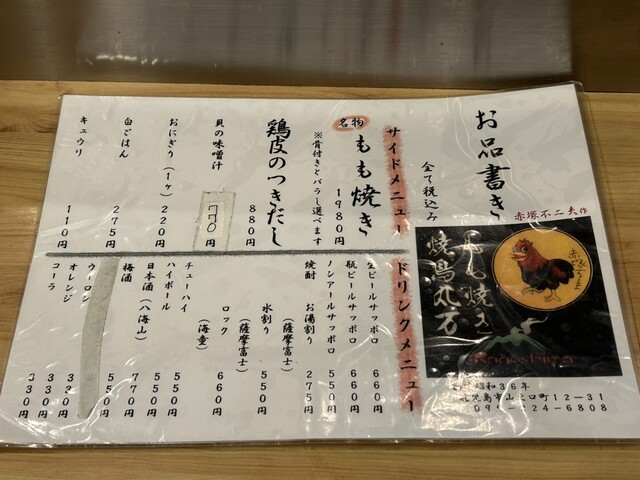 お品書き
全て税込み
赤塚不二夫作
もも焼き
焼鳥丸万
昭和36年
鹿児島市山之口町12-31
099-224-6808
サイドメニュー
名物 もも焼き 1980円
※骨付きとバラし選べます
鶏皮のつきだし 880円
貝の味噌汁 770円
おにぎり(1ヶ) 220円
白ごはん 275円
キュウリ 110円
ドリンクメニュー
生ビールサッポロ 660円
瓶ビールサッポロ 660円
ノンアールサッポロ 550円
焼酎 お湯割り 275円
(薩摩富士)
水割り 550円
(薩摩富士)
ロック 660円
(海童)
チューハイ 550円
ハイボール 550円
日本酒(八海山) 770円
梅酒 550円
ウーロン
オレンジ 330円
コーラ 330円
330円